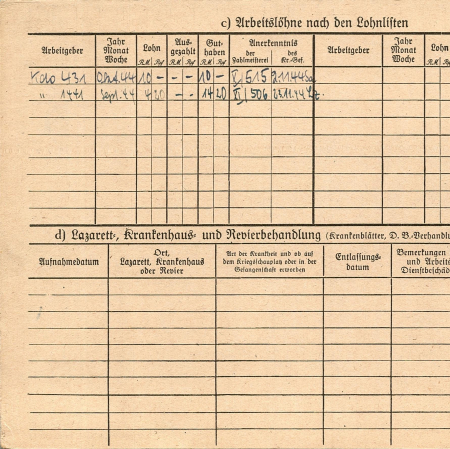 c) Arbeitslöhne nach den Lohnlisten
Arbeitgeber
Jahr Monat Woche
Lohn
R.M Rpf
Ausgezahlt
R.M Rpf
Guthaben
R.M Rpf
Anerkenntnis
der Zahlmeisterei
des Kr.-Gef.
Arbeitgeber
Jahr Monat Woche
Lohn
R.M
Kdo 431 Okt. 44 10 - - - 10 - V/515 2.11.44
" 1441 Sept. 44 4 20 - - 14 20 VI/506 23.11.44
d) Lazarett-, Krankenhaus- und Revierbehandlung (Krankenblätter, D. B.-Verhandlu
Aufnahmedatum
Ort, Lazarett, Krankenhaus oder Revier
Art der Krankheit und ob auf dem Kriegsschauplatz oder in der Gefangenschaft erworben
Entlassungsdatum
Bemerkungen
und Arbeits
Dienstbeschäd